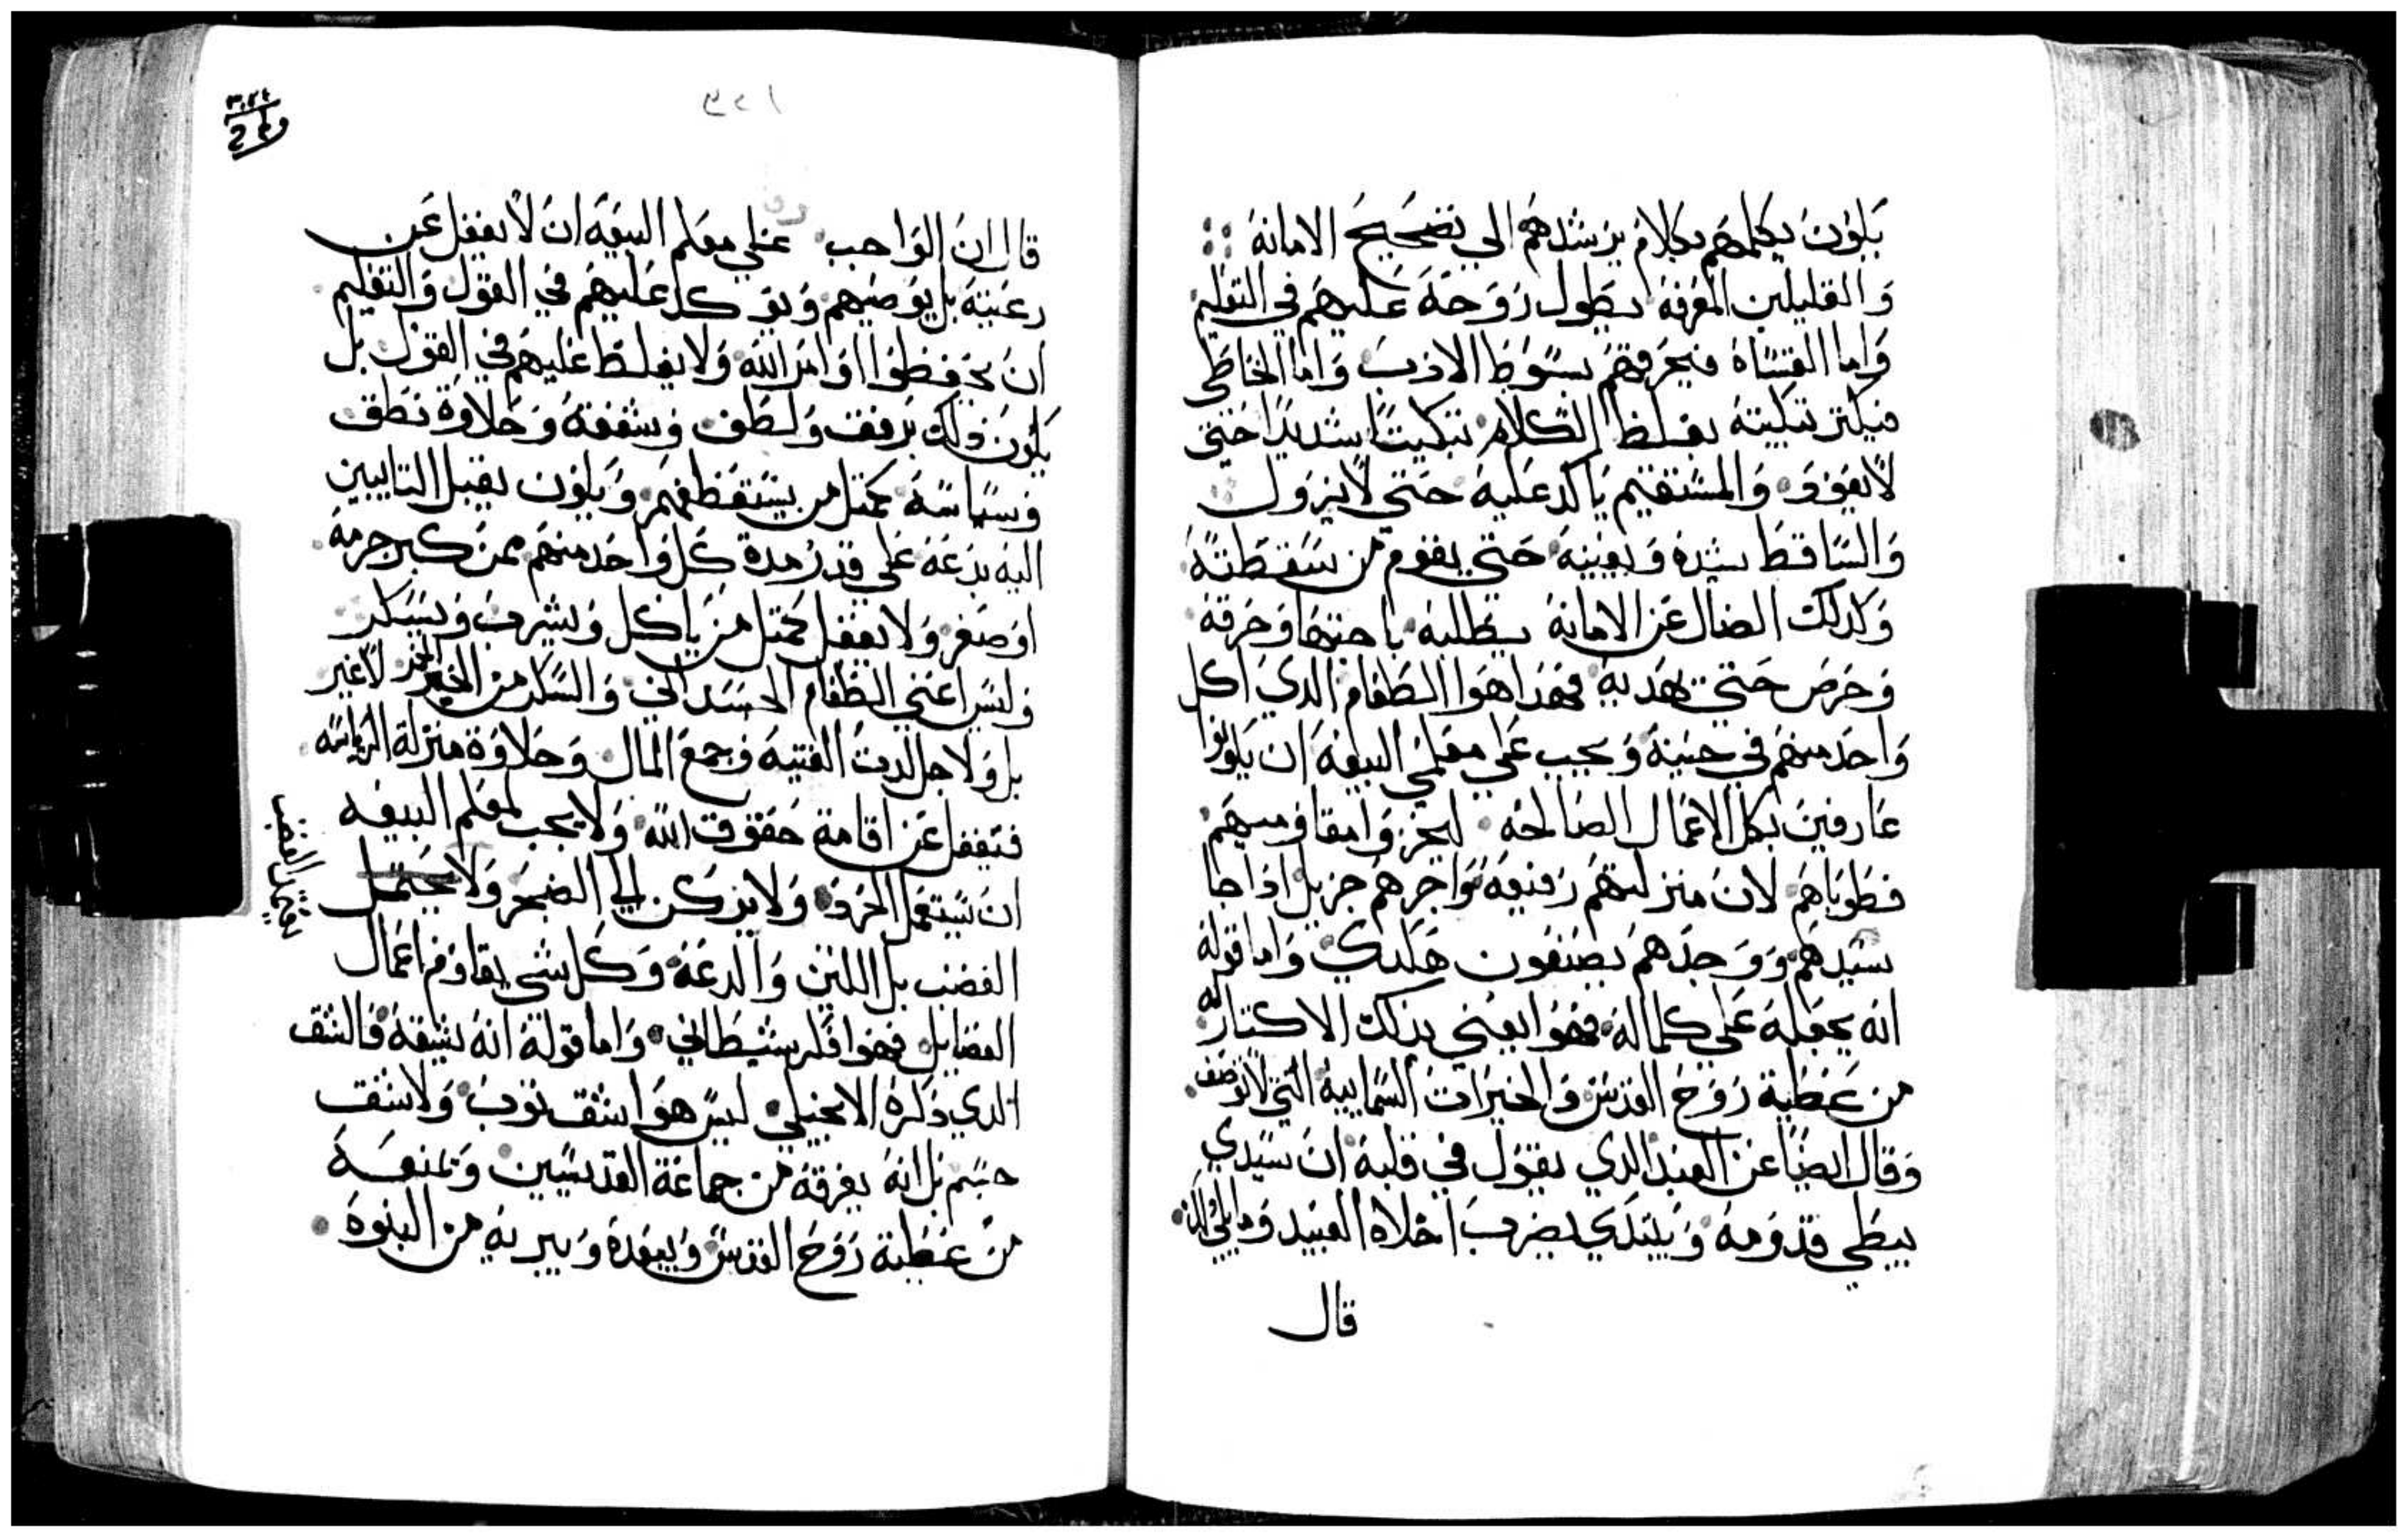 يكون يكلمهم بكلام يرشدهم الي تصحيح الامانة
والقليلين المعرفة يطول روحه عليهم في التعليم
واما القساة فيحرفهم بسوط الادب واما الخاطي
فيكتر تبكيته بغلظ الكلام تبكيتا شديدا حتي
لا يعود والمستقيم ياكد عليه حتي لا يزول
والساقط يشده ويعينه حتي يقوم من سقطته
وكدلك الضال عن الامانة يطلبه باجتهاد وحرقة
وحرص حتي يهديه فهدا هوا الطعام الدي اكل
واحد منهم في حينه ويجب علي معلمي البيعة ان يكونوا
عارفين بكل الاعمال الصالحه ليحزوا مقاوميهم
فطوباهم لان منزلتهم رفيعة واجرهم جزيل ادا جا
سيدهم ووجدهم يصنعون هكدي واما قوله
انه يجعله علي كماله فهوا يعني بدلك الاكتار له
من عطية روح القدس والخيرات السمايية التي لا توصف
وقال ايضا عن العبد الدي يقول في قلبه ان سيدي
يبطي قدومه ويبتدي يضرب اخلاه العبيد وما يلي دلك
قال
٣٢١
قال ان الواجب علي معلم البيعة ان لا يغفل عن
رعيته بل يوصيهم ويوكل عليهم في القول والتعليم
ان يحفظوا اوامر الله ولا يغلظ عليهم في القول بل
يكون دلك برفق ولطف وشفقة وحلاوة نطق
وسياسة كمتل من يستعظفهم ويكون يقبل التايبين
اليه بدعة علي قدر مدة كل واحد منهم ممن كبر جرمه
او صغر ولا يغفل كمتل من ياكل ويشرب ويسكر
وليس اعني الطعام الجسداني والسكر من الخمر لا غير
بل ولاجل لدت القنية وجمع المال وحلاوة منزلة الرياسه
فتغفل عن اقامة حقوق الله ولا يجب لمعلم البيعه
ان يستعمل الحرد ولا يركن الي الضجر ولا يحتمل
الغضب بل اللين والدعة وكل شي يقاوم اعمال
الفضايل فهوا فكر شيطاني واما قوله انه يشقه فالشق
الدي دكره الانجيلي ليس هوا شق توب ولا شق
جسم بل انه يفرقه من جماعة القديسين ويمنعه
من عطية روح القدس ويبعده ويبريه من البنوة